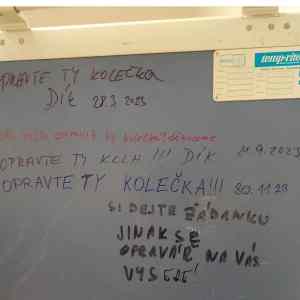 OPRAVTE TY KOLEČKA
DÍK 28.3 2023
temp-rite
OPRAVTE TY KOLA !!! DÍK 21.9.2023
OPRAVTE TY KOLEČKA!!! 30.11 23
SI DEJTE ŽÁDANKU
JINAK SE
OPRAVÁŘ NA VÁS
VYSERE